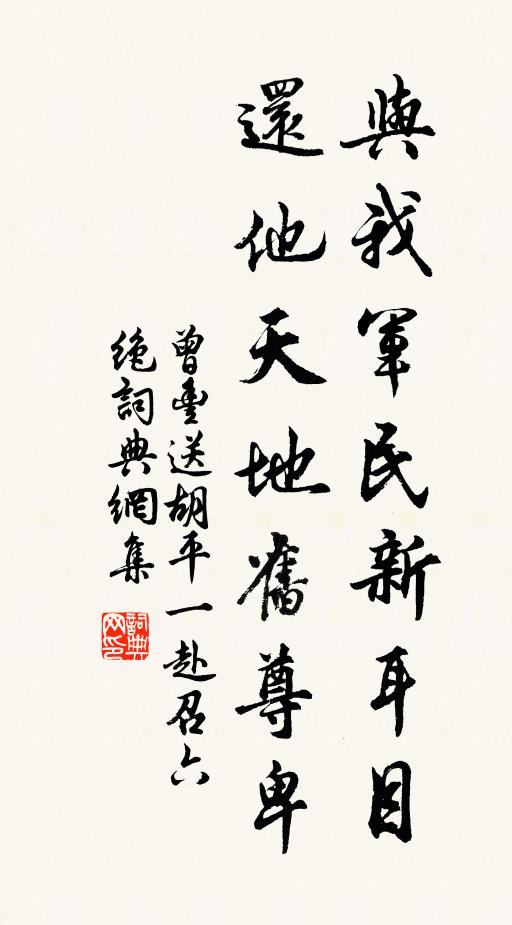 與我軍民新耳目
還他天地舊尊卑
曾豐送胡平一赴召六
絶詞典網集
詞典网印